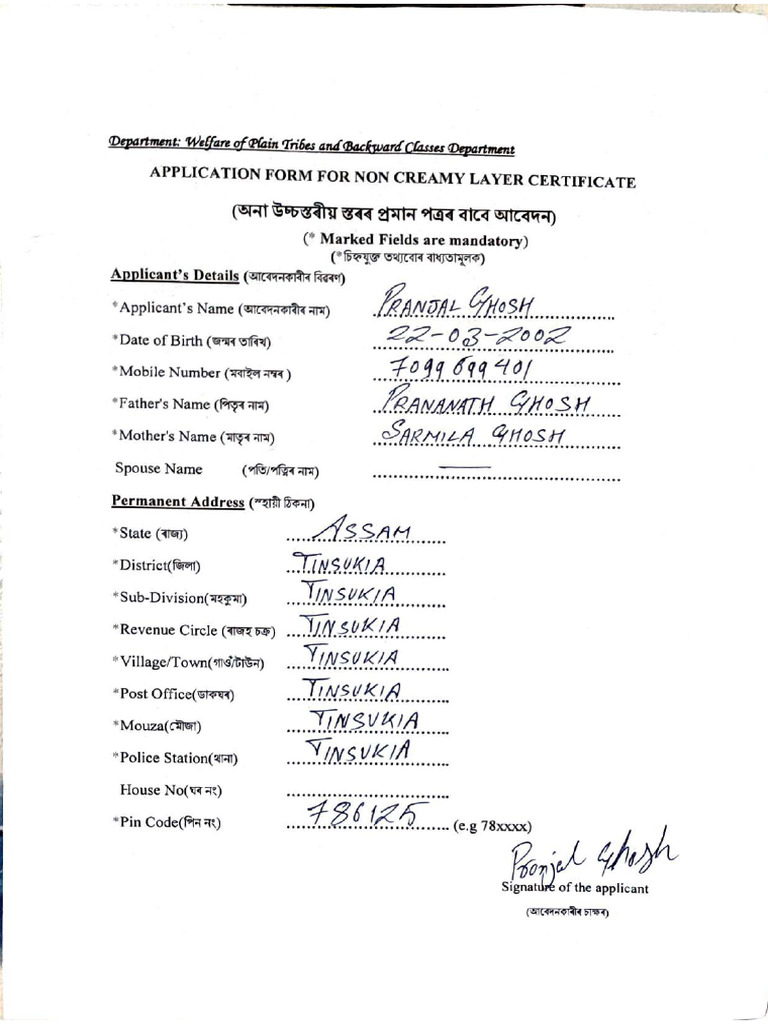 Department: Welfare of Plain Tribes and Backward Classes Department
APPLICATION FORM FOR NON CREAMY LAYER CERTIFICATE
(অনা উচ্চস্তৰীয় স্তৰৰ প্ৰমান পত্ৰৰ বাবে আবেদন)
(* Marked Fields are mandatory)
(*চিহ্নযুক্ত তথ্যবোৰ বাধ্যতামূলক)
Applicant's Details (আবেদনকাৰীৰ বিৱৰণ)
*Applicant's Name (আবেদনকাৰীৰ নাম) PRANJAL GHOSH
*Date of Birth (জন্মৰ তাৰিখ) 22-03-2002
*Mobile Number (মবাইল নম্বৰ ) 7099699401
*Father's Name (পিতৃৰ নাম) PRANANATH GHOSH
*Mother's Name (মাতৃৰ নাম) SARMILA GHOSH
Spouse Name (পতি/পত্নিৰ নাম) —
Permanent Address (স্হায়ী ঠিকনা)
*State (ৰাজ্য) ASSAM
*District(জিলা) TINSUKIA
*Sub-Division(মহকুমা) TINSUKIA
*Revenue Circle (ৰাজহ চক্ৰ) TINSUKIA
*Village/Town(গাওঁ/টাউন) TINSUKIA
*Post Office(ডাকঘৰ) TINSUKIA
*Mouza(মৌজা) TINSUKIA
*Police Station(থানা) TINSUKIA
House No(ঘৰ নং)
*Pin Code(পিন নং) 786125 (e.g 78xxxx)
Pranjal Ghosh
Signature of the applicant
(আবেদনকাৰীৰ চাক্ষৰ)